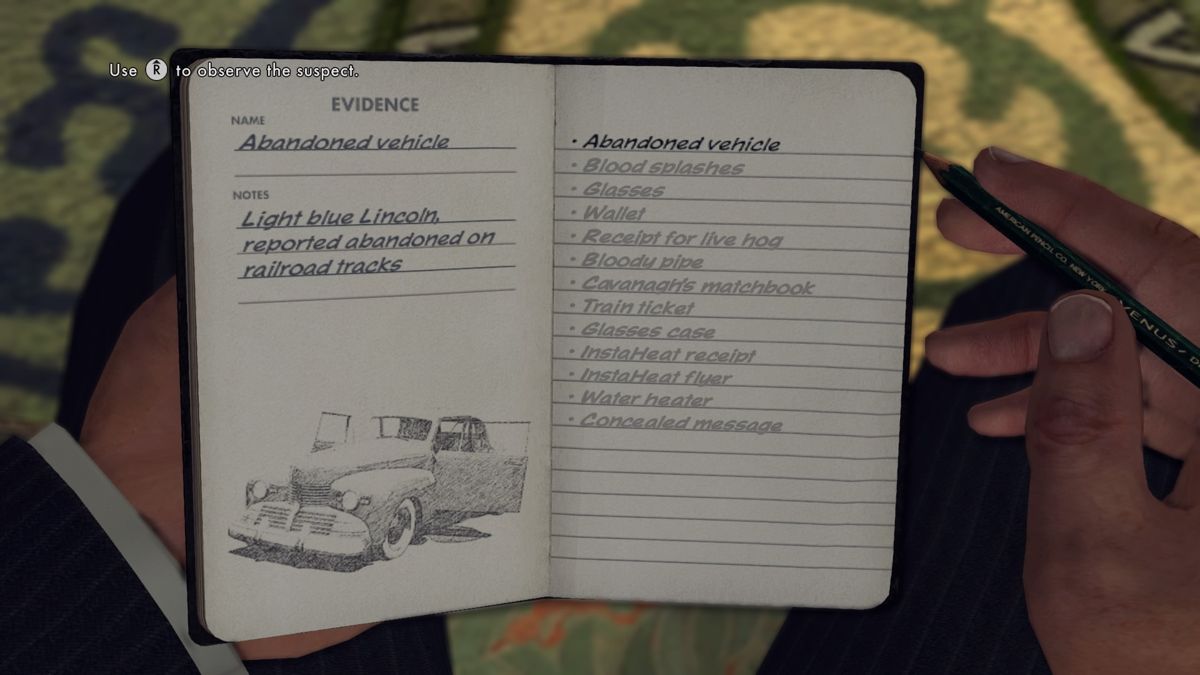 Use R to observe the suspect.
EVIDENCE
NAME
Abandoned vehicle
NOTES
Light blue Lincoln,
reported abandoned on
railroad tracks
· Abandoned vehicle
· Blood splashes
· Glasses
· Wallet
· Receipt for live hog
· Bloody pipe
· Cavanagh's matchbook
· Train ticket
· Glasses case
· InstaHeat receipt
· InstaHeat flyer
· Water heater
· Concealed message
AMERICAN PENCIL CO. NEW YORK
VENUS